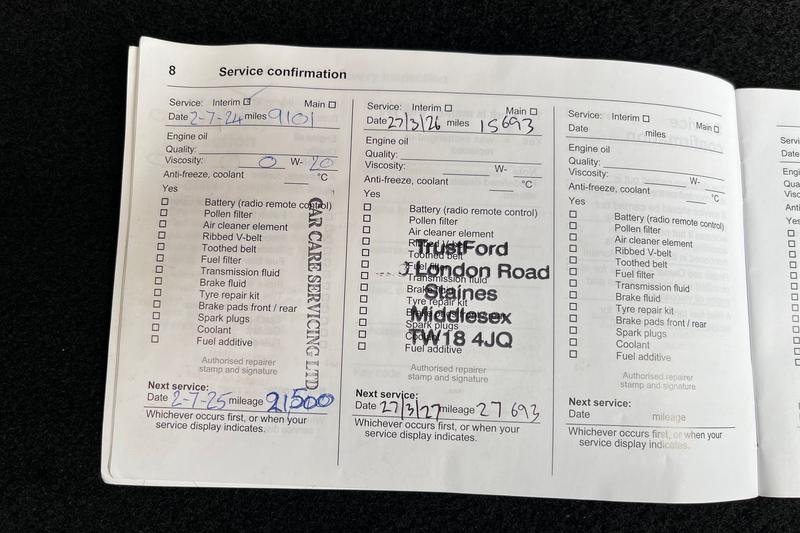 8 Service confirmation
Service: Interim ☑ Main ☐
Date 2-7-24 miles 9101
Engine oil
Quality:
Viscosity: 0 W- 20
Anti-freeze, coolant °C
Yes
☐ Battery (radio remote control)
☐ Pollen filter
☐ Air cleaner element
☐ Ribbed V-belt
☐ Toothed belt
☐ Fuel filter
☐ Transmission fluid
☐ Brake fluid
☐ Tyre repair kit
☐ Brake pads front / rear
☐ Spark plugs
☐ Coolant
☐ Fuel additive
CAR CARE SERVICING LTD
Authorised repairer
stamp and signature
Next service:
Date 2-7-25 mileage 21500
Whichever occurs first, or when your
service display indicates.
Service: Interim ☐ Main ☐
Date 27/3/26 miles 15693
Engine oil
Quality:
Viscosity: W-
Anti-freeze, coolant °C
Yes
☐ Battery (radio remote control)
☐ Pollen filter
☐ Air cleaner element
☐ Ribbed V-belt
☐ Toothed belt
☐ Fuel filter
☐ Transmission fluid
☐ Brake fluid
☐ Tyre repair kit
☐ Brake pads front / rear
☐ Spark plugs
☐ Coolant
☐ Fuel additive
TrustFord
London Road
Staines
Middlesex
TW18 4JQ
Authorised repairer
stamp and signature
Next service:
Date 27/3/27 mileage 27 693
Whichever occurs first, or when your
service display indicates.
Service: Interim ☐ Main ☐
Date miles
Engine oil
Quality:
Viscosity: W-
Anti-freeze, coolant °C
Yes
☐ Battery (radio remote control)
☐ Pollen filter
☐ Air cleaner element
☐ Ribbed V-belt
☐ Toothed belt
☐ Fuel filter
☐ Transmission fluid
☐ Brake fluid
☐ Tyre repair kit
☐ Brake pads front / rear
☐ Spark plugs
☐ Coolant
☐ Fuel additive
Authorised repairer
stamp and signature
Next service:
Date mileage
Whichever occurs first, or when your
service display indicates.